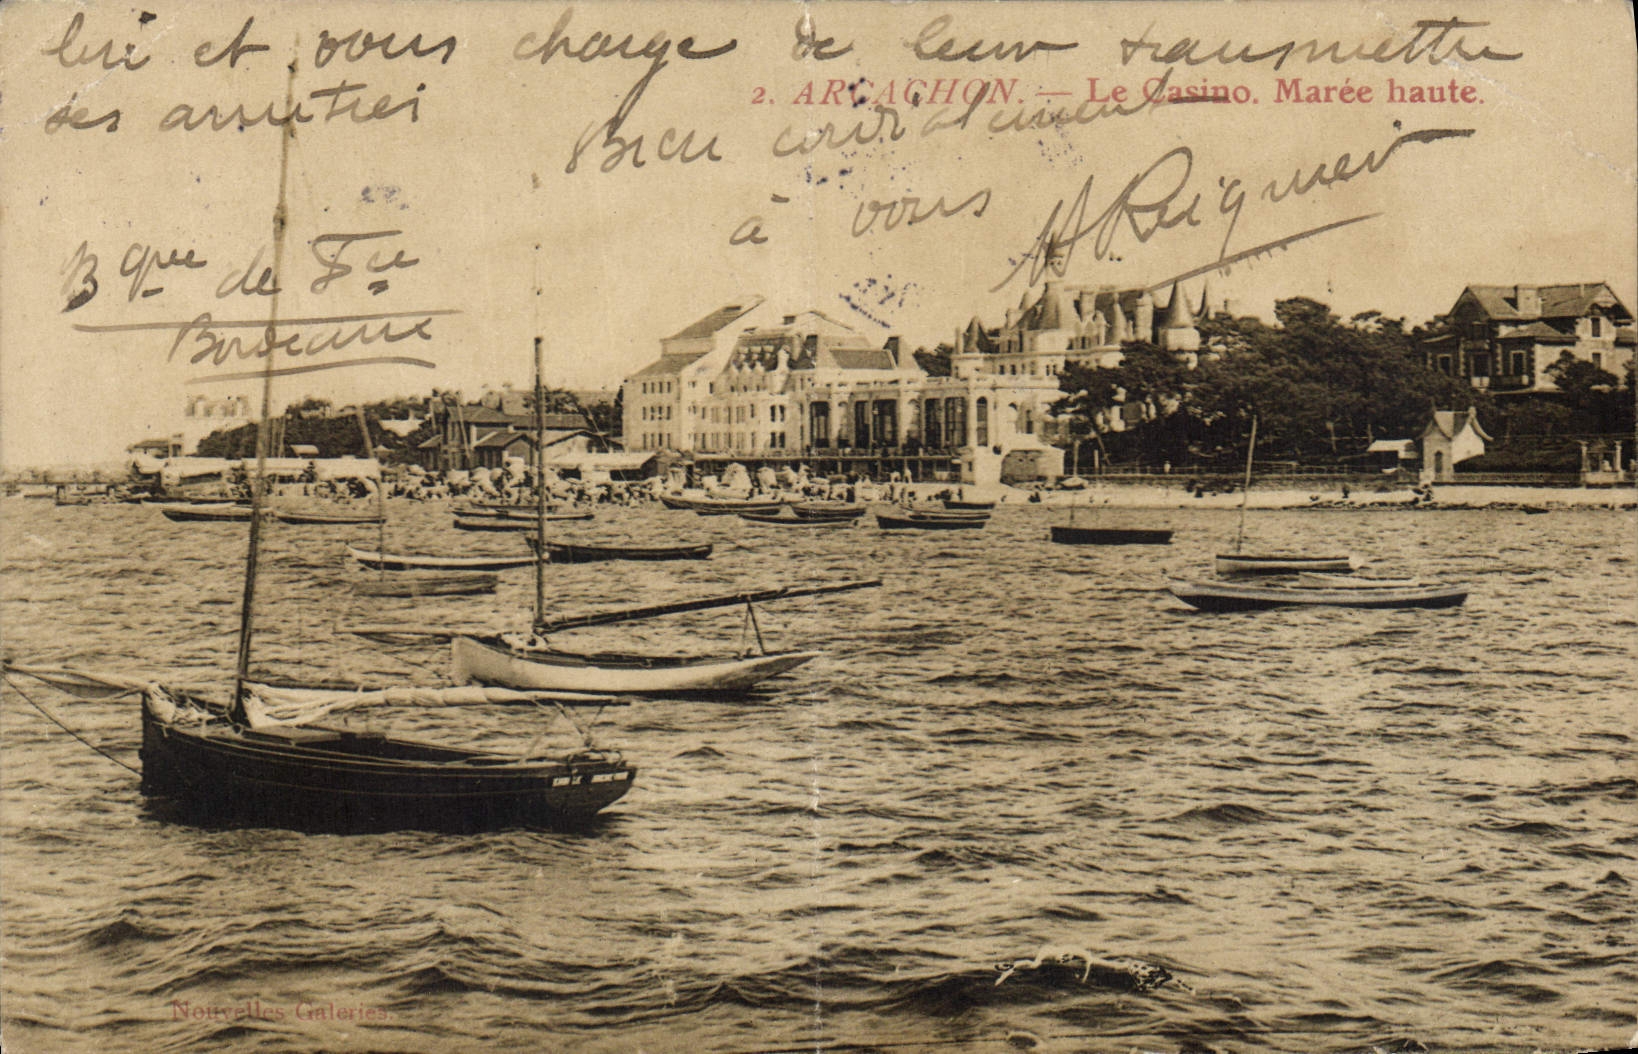 lui et vous charge de leur transmettre
ses amitiés
2. ARCACHON. — Le Casino. Marée haute.
Bien cordialement
à vous
Bque de Fce
Bordeaux
Nouvelles Galeries.